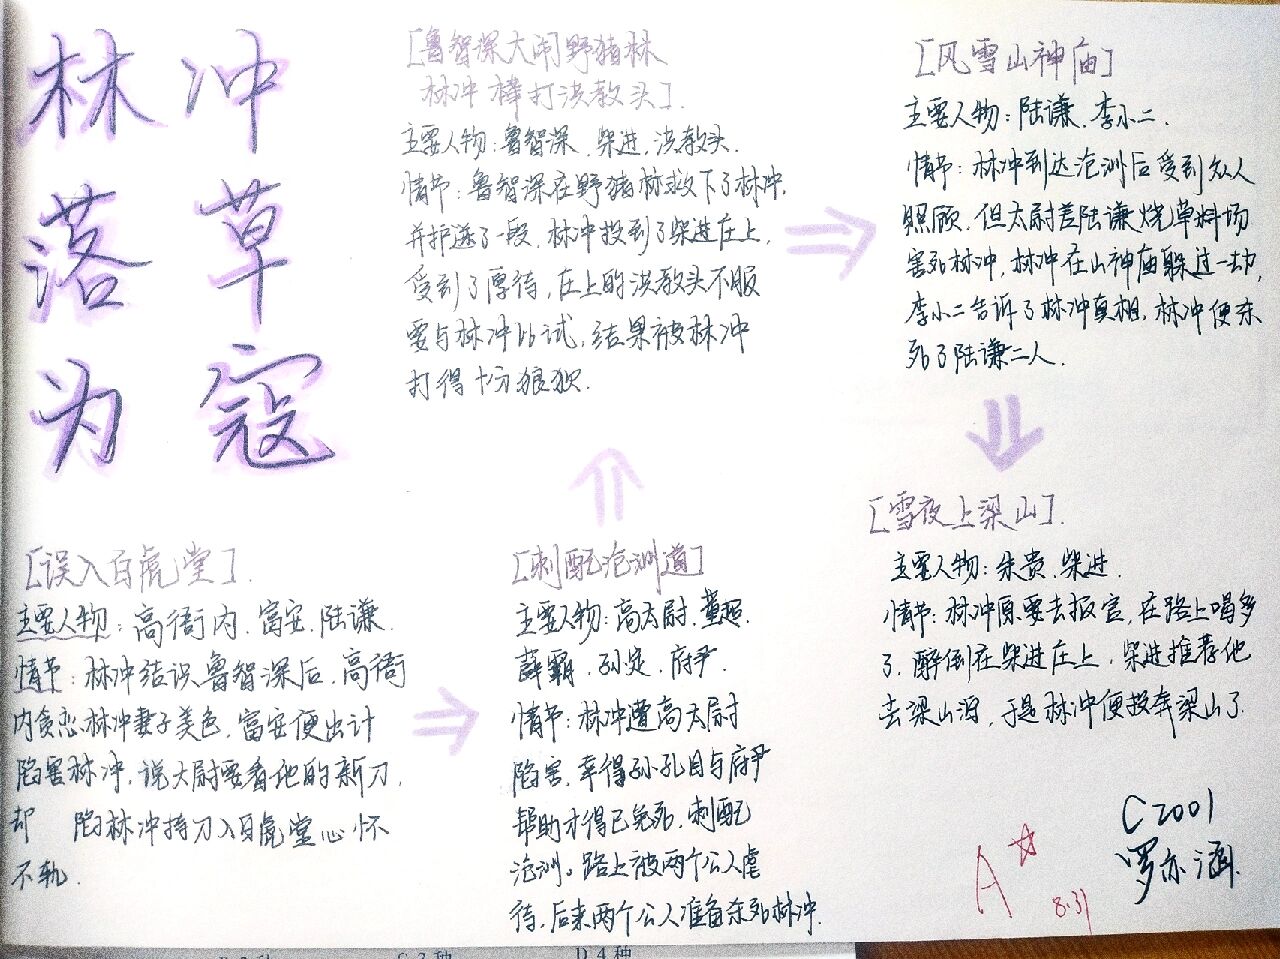 林冲
落草
为寇
[误入白虎堂].
主要人物: 高衙内.富安.陆谦.
情节: 林冲结识鲁智深后,高衙
内贪恋林冲妻子美色,富安便出计
陷害林冲,说太尉要看他的新刀,
却 陷林冲持刀入白虎堂心怀
不轨.
[刺配沧洲道]
主要人物:高太尉.董超.
薛霸.孙定.府尹.
情节:林冲遭高太尉
陷害,幸得孙孔目与府尹
帮助才得已免死,刺配
沧洲。路上被两个公人虐
待,后来两个公人准备杀死林冲.
[鲁智深大闹野猪林
林冲棒打洪教头].
主要人物:鲁智深.柴进.洪教头.
情节:鲁智深在野猪林救下了林冲,
并护送了一段.林冲投到了柴进庄上,
受到了厚待,庄上的洪教头不服
要与林冲比试,结果被林冲
打得十分狼狈.
[风雪山神庙]
主要人物:陆谦.李小二.
情节:林冲到达沧洲后受到众人
照顾.但太尉差陆谦烧草料场
害死林冲,林冲在山神庙躲过一劫,
李小二告诉了林冲真相,林冲便杀
死了陆谦二人.
[雪夜上梁山].
主要人物:朱贵.柴进.
情节:林冲原要去报官,在路上喝多
了,醉倒在柴进庄上,柴进推荐他
去梁山泊,于是林冲便投奔梁山了.
C2001
罗亦涵
A☆
8.31
C.3种
D.4种